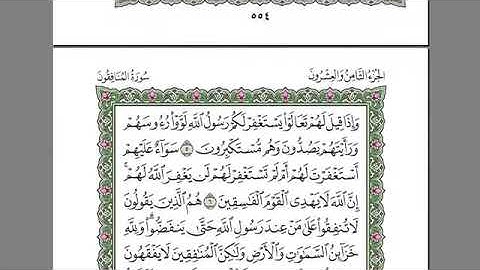 ٥٥٤
الجُزْءُ الثَّامِنُ وَالْعِشْرُونَ
سُورَةُ المُنَافِقُونَ
وَإِذَا قِيلَ لَهُمْ تَعَالَوْا يَسْتَغْفِرْ لَكُمْ رَسُولُ اللَّهِ لَوَّوْا رُءُوسَهُمْ
وَرَأَيْتَهُمْ يَصُدُّونَ وَهُم مُّسْتَكْبِرُونَ ٥ سَوَاءٌ عَلَيْهِمْ
أَسْتَغْفَرْتَ لَهُمْ أَمْ لَمْ تَسْتَغْفِرْ لَهُمْ لَن يَغْفِرَ اللَّهُ لَهُمْ ۚ
إِنَّ اللَّهَ لَا يَهْدِي الْقَوْمَ الْفَاسِقِينَ ٦ هُمُ الَّذِينَ يَقُولُونَ
لَا تُنفِقُوا عَلَىٰ مَنْ عِندَ رَسُولِ اللَّهِ حَتَّىٰ يَنفَضُّوا ۗ وَلِلَّهِ
خَزَائِنُ السَّمَاوَاتِ وَالْأَرْضِ وَلَٰكِنَّ الْمُنَافِقِينَ لَا يَفْقَهُونَ